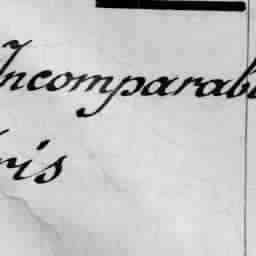 Incomparabl
ris